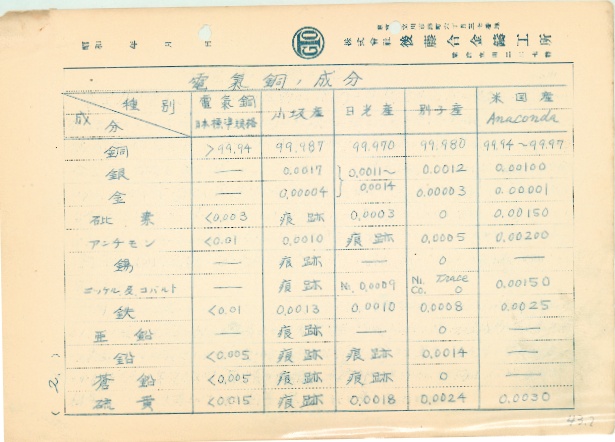 昭和　年　月　日
GTO
株式會社 後藤合金鑄工所
電氣銅ノ成分
種別 成分 電氣銅 日本標準規格 小坂産 日光産 別子産 米国産 Anaconda
銅 >99.94 99.987 99.970 99.980 99.94～99.97
銀 — 0.0017 0.0011～0.0014 0.0012 0.00100
金 — 0.00004 0.00003 0.00001
砒素 <0.003 痕跡 0.0003 0 0.00150
アンチモン <0.01 0.0010 痕跡 0.0005 0.00200
錫 — 痕跡 — 0 —
ニッケル及コバルト — 痕跡 Ni. 0.0009 Ni. Trace Co. 0 0.00150
鉄 <0.01 0.0013 0.0010 0.0008 0.0025
亜鉛 — 痕跡 — 0 —
鉛 <0.005 痕跡 痕跡 0.0014 —
蒼鉛 <0.005 痕跡 — 0 —
硫黄 <0.015 痕跡 0.0018 0.0024 0.0030
(2.)